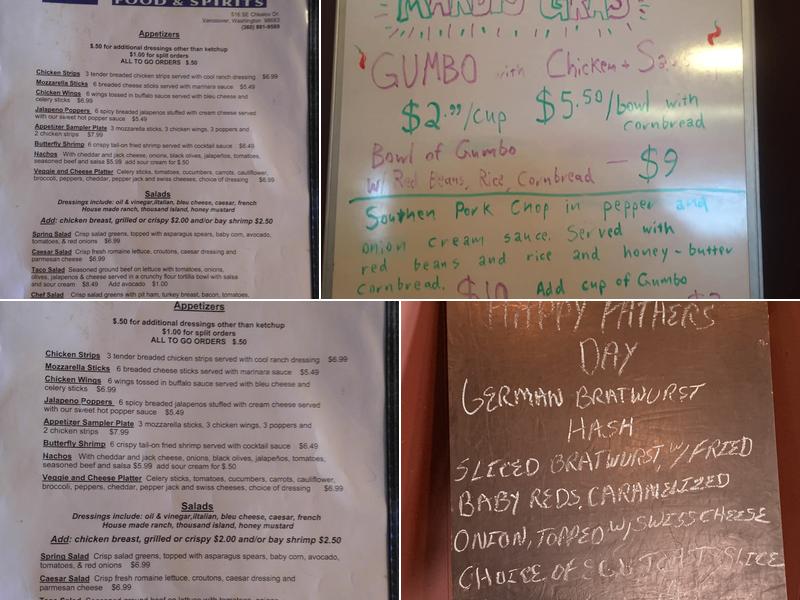 FOOD & SPIRITS
516 SE Chkalov Dr.
Vancouver, Washington 98683
(360) 891-9589
Appetizers
$.50 for additional dressings other than ketchup
$1.00 for split orders
ALL TO GO ORDERS $.50
Chicken Strips 3 tender breaded chicken strips served with cool ranch dressing $6.99
Mozzarella Sticks 6 breaded cheese sticks served with marinara sauce $5.49
Chicken Wings 6 wings tossed in buffalo sauce served with bleu cheese and
celery sticks $6.99
Jalapeno Poppers 6 spicy breaded jalapenos stuffed with cream cheese served
with our sweet hot popper sauce $5.49
Appetizer Sampler Plate 3 mozzarella sticks, 3 chicken wings, 3 poppers and
2 chicken strips $7.99
Butterfly Shrimp 6 crispy tail-on fried shrimp served with cocktail sauce $6.49
Nachos With cheddar and jack cheese, onions, black olives, jalapeños, tomatoes,
seasoned beef and salsa $5.99 add sour cream for $.50
Veggie and Cheese Platter Celery sticks, tomatoes, cucumbers, carrots, cauliflower,
broccoli, peppers, cheddar, pepper jack and swiss cheeses, choice of dressing $6.99
Salads
Dressings include: oil & vinegar,iItalian, bleu cheese, caesar, french
House made ranch, thousand island, honey mustard
Add: chicken breast, grilled or crispy $2.00 and/or bay shrimp $2.50
Spring Salad Crisp salad greens, topped with asparagus spears, baby corn, avocado,
tomatoes, & red onions $6.99
Caesar Salad Crisp fresh romaine lettuce, croutons, caesar dressing and
parmesan cheese $6.99
Taco Salad Seasoned ground beef on lettuce with tomatoes, onions,
olives, jalapenos & cheese served in a crunchy flour tortilla bowl with salsa
and sour cream $8.49 Add avocado $1.00
Chef Salad Crisp salad greens with pit ham, turkey breast, bacon, tomatoes,
MARDIS GRAS
GUMBO with Chicken +
$2.99/cup $5.50/bowl with
cornbread
Bowl of Gumbo
w/ Red Beans, Rice, Cornbread — $9
Southen Pork Chop in pepper and
onion cream sauce. Served with
red beans and rice and honey-butter
cornbread. $10 Add cup of Gumbo
Appetizers
$.50 for additional dressings other than ketchup
$1.00 for split orders
ALL TO GO ORDERS $.50
Chicken Strips 3 tender breaded chicken strips served with cool ranch dressing $6.99
Mozzarella Sticks 6 breaded cheese sticks served with marinara sauce $5.49
Chicken Wings 6 wings tossed in buffalo sauce served with bleu cheese and
celery sticks $6.99
Jalapeno Poppers 6 spicy breaded jalapenos stuffed with cream cheese served
with our sweet hot popper sauce $5.49
Appetizer Sampler Plate 3 mozzarella sticks, 3 chicken wings, 3 poppers and
2 chicken strips $7.99
Butterfly Shrimp 6 crispy tail-on fried shrimp served with cocktail sauce $6.49
Nachos With cheddar and jack cheese, onions, black olives, jalapeños, tomatoes,
seasoned beef and salsa $5.99 add sour cream for $.50
Veggie and Cheese Platter Celery sticks, tomatoes, cucumbers, carrots, cauliflower,
broccoli, peppers, cheddar, pepper jack and swiss cheeses, choice of dressing $6.99
Salads
Dressings include: oil & vinegar,iItalian, bleu cheese, caesar, french
House made ranch, thousand island, honey mustard
Add: chicken breast, grilled or crispy $2.00 and/or bay shrimp $2.50
Spring Salad Crisp salad greens, topped with asparagus spears, baby corn, avocado,
tomatoes, & red onions $6.99
Caesar Salad Crisp fresh romaine lettuce, croutons, caesar dressing and
parmesan cheese $6.99
HAPPY FATHERS
DAY
GERMAN BRATWURST
HASH
SLICED BRATWURST, W/ FRIED
BABY REDS, CARAMELIZED
ONION, TOPPED W/ SWISS CHEESE
CHOICE OF EGG TOAST SLICE